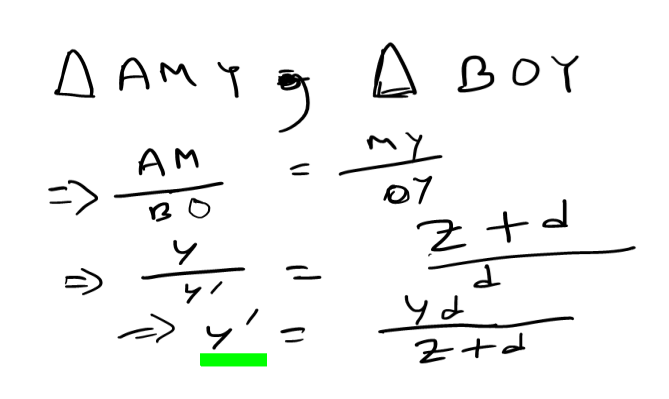 Δ AMY , Δ BOY
=> AM / BO = MY / OY
=> y / y' = z + d / d
=> y' = yd / z + d